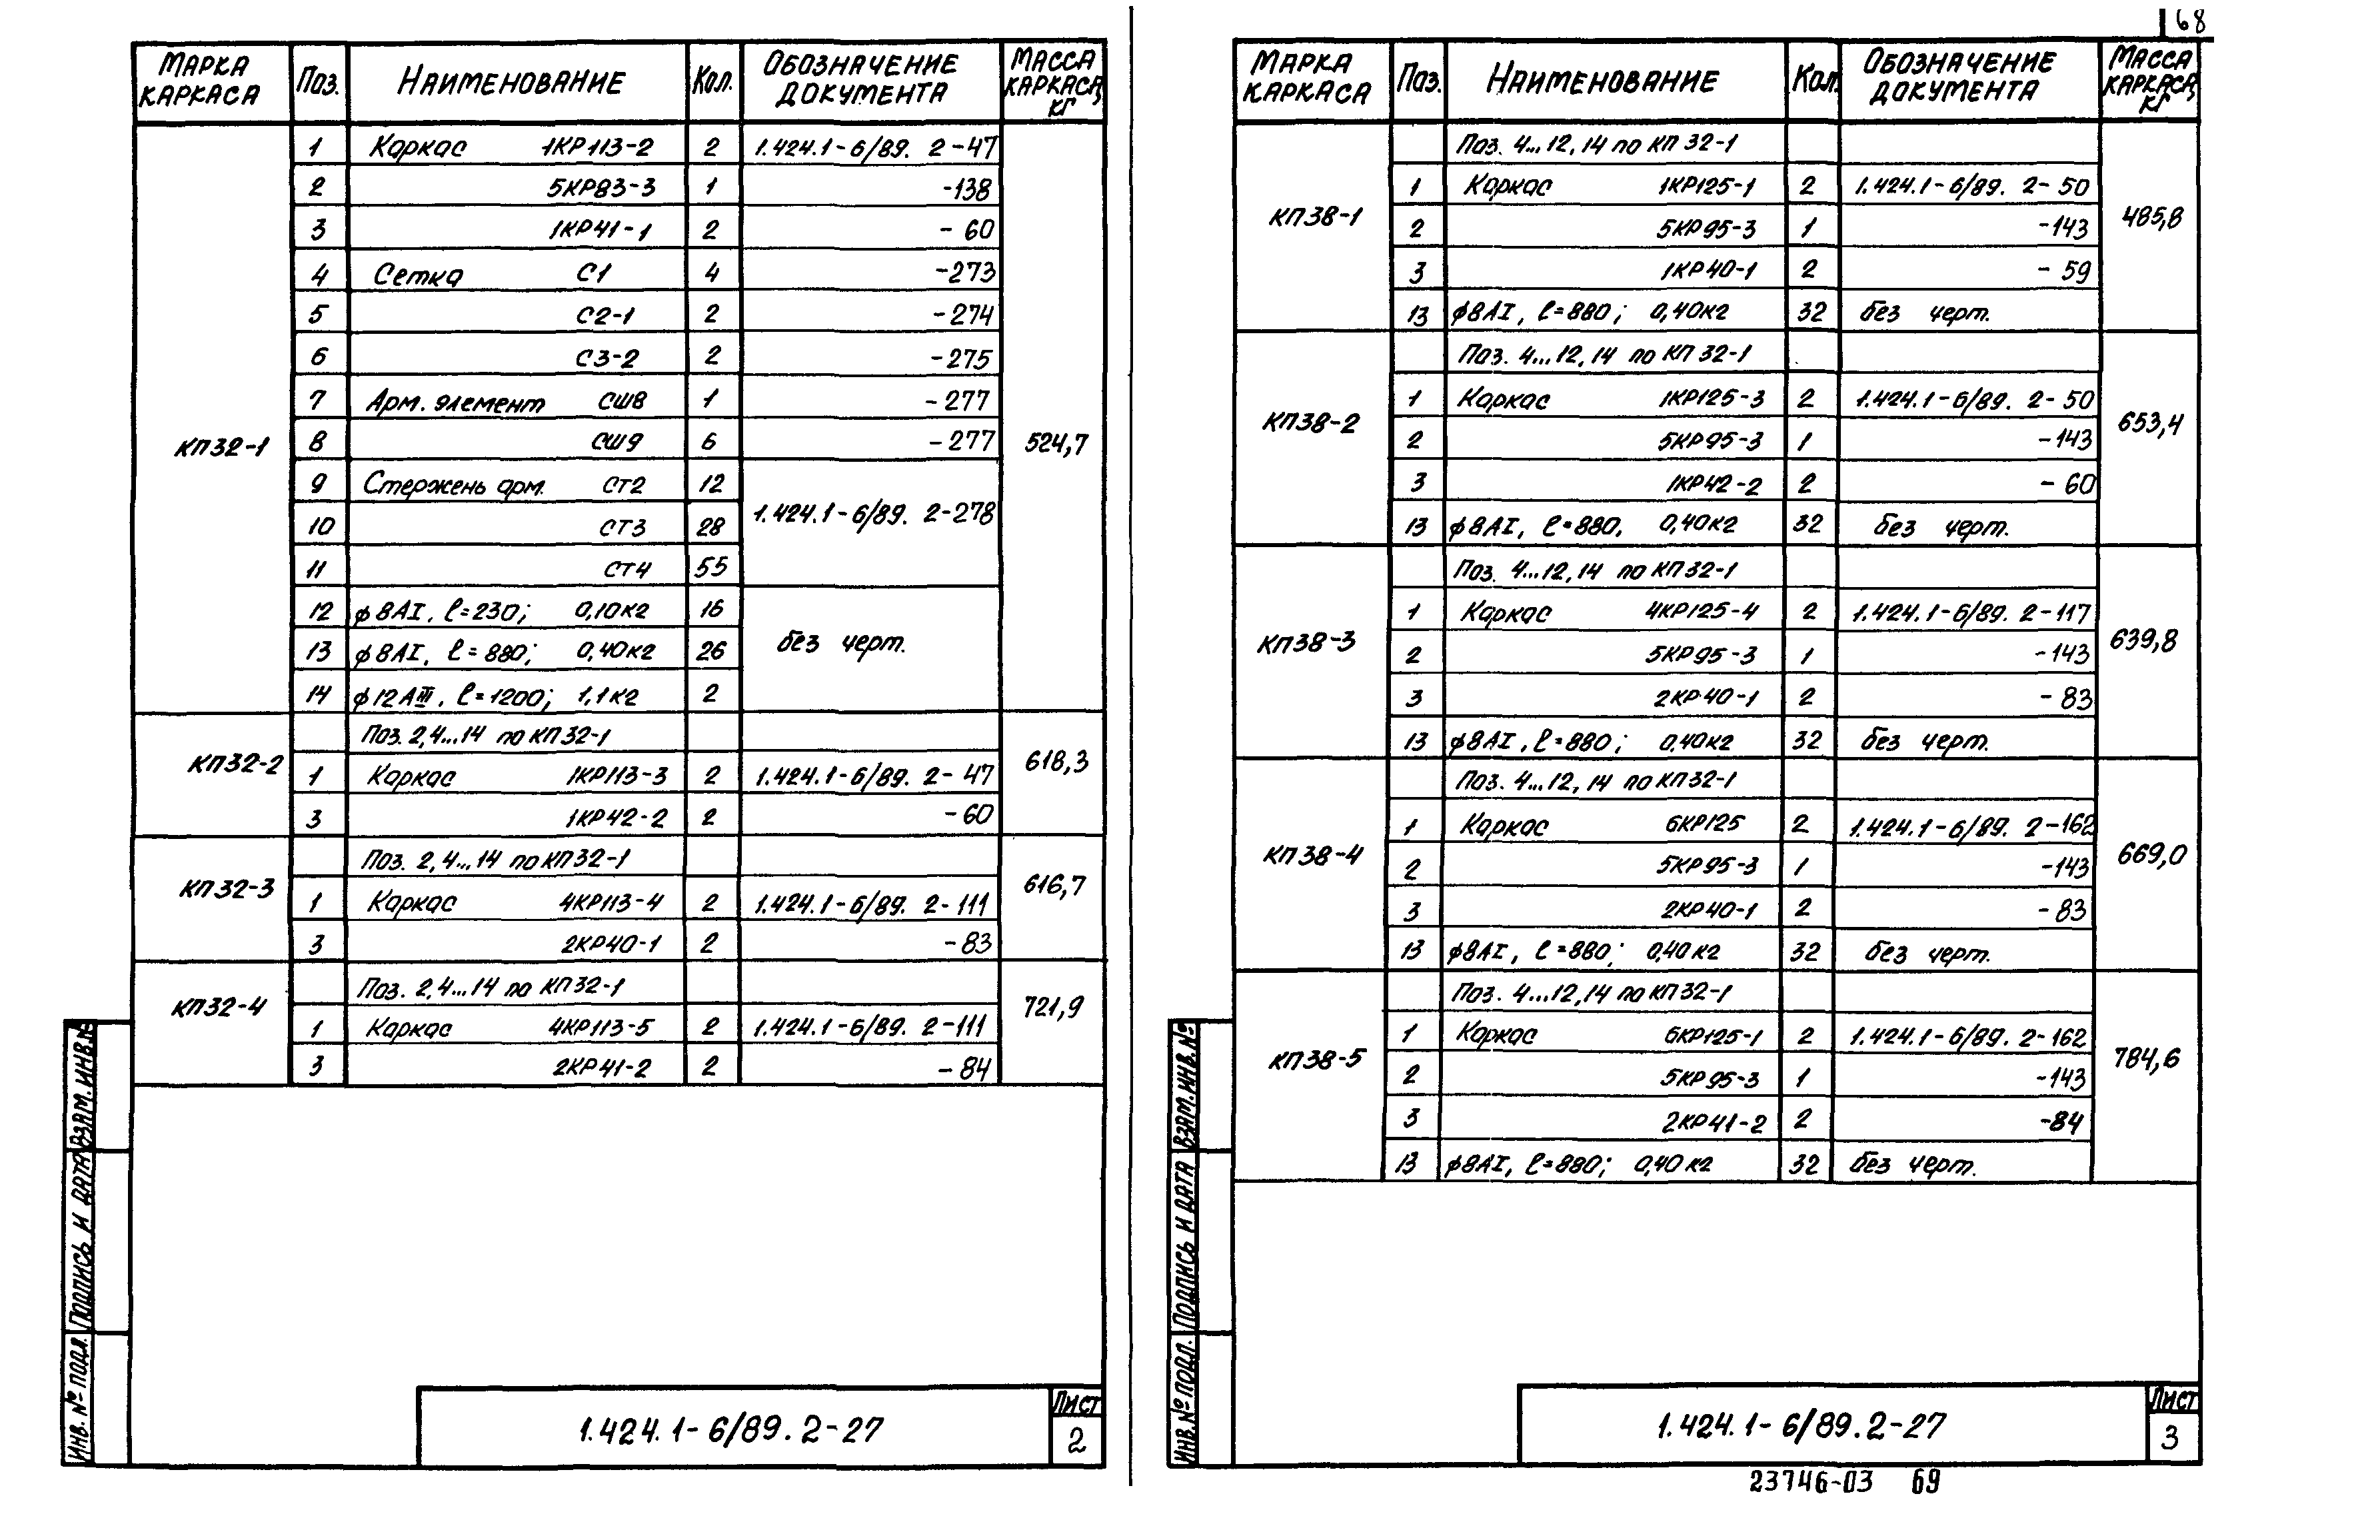 68
Марка каркаса Поз. Наименование Кол. Обозначение документа Масса каркаса, кг
КП32-1 524,7
1 Каркас 1КР113-2 2 1.424.1-6/89. 2-47
2 5КР83-3 1 -138
3 1КР41-1 2 -60
4 Сетка С1 4 -273
5 С2-1 2 -274
6 С3-2 2 -275
7 Арм. элемент СШ8 1 -277
8 СШ9 6 -277
9 Стержень арм. СТ2 12 1.424.1-6/89. 2-278
10 СТ3 28
11 СТ4 55
12 ф8АI, ℓ=230; 0,10кг 16 без черт.
13 ф8АI, ℓ=880; 0,40кг 26
14 ф12АIII, ℓ=1200; 1,1кг 2
КП32-2 618,3
Поз. 2,4...14 по КП32-1
1 Каркас 1КР113-3 2 1.424.1-6/89. 2-47
3 1КР42-2 2 -60
КП32-3 616,7
Поз. 2,4...14 по КП32-1
1 Каркас 4КР113-4 2 1.424.1-6/89. 2-111
3 2КР40-1 2 -83
КП32-4 721,9
Поз. 2,4...14 по КП32-1
1 Каркас 4КР113-5 2 1.424.1-6/89. 2-111
3 2КР41-2 2 -84
Взам. инв.№
Подпись и дата
Инв. № подл.
1.424.1-6/89.2-27
Лист
2
Марка каркаса Поз. Наименование Кол. Обозначение документа Масса каркаса, кг
КП38-1 485,8
Поз. 4...12,14 по КП32-1
1 Каркас 1КР125-1 2 1.424.1-6/89. 2-50
2 5КР95-3 1 -143
3 1КР40-1 2 -59
13 ф8АI, ℓ=880; 0,40кг 32 без черт.
КП38-2 653,4
Поз. 4...12,14 по КП32-1
1 Каркас 1КР125-3 2 1.424.1-6/89. 2-50
2 5КР95-3 1 -143
3 1КР42-2 2 -60
13 ф8АI, ℓ=880. 0,40кг 32 без черт.
КП38-3 639,8
Поз. 4...12,14 по КП32-1
1 Каркас 4КР125-4 2 1.424.1-6/89. 2-117
2 5КР95-3 1 -143
3 2КР40-1 2 -83
13 ф8АI, ℓ=880; 0,40кг 32 без черт.
КП38-4 669,0
Поз. 4...12,14 по КП32-1
1 Каркас 6КР125 2 1.424.1-6/89. 2-162
2 5КР95-3 1 -143
3 2КР40-1 2 -83
13 ф8АI, ℓ=880; 0,40кг 32 без черт.
КП38-5 784,6
Поз. 4...12,14 по КП32-1
1 Каркас 6КР125-1 2 1.424.1-6/89. 2-162
2 5КР95-3 1 -143
3 2КР41-2 2 -84
13 ф8АI, ℓ=880; 0,40кг 32 без черт.
Взам. инв.№
Подпись и дата
Инв. № подл.
1.424.1-6/89.2-27
Лист
3
23746-03 69